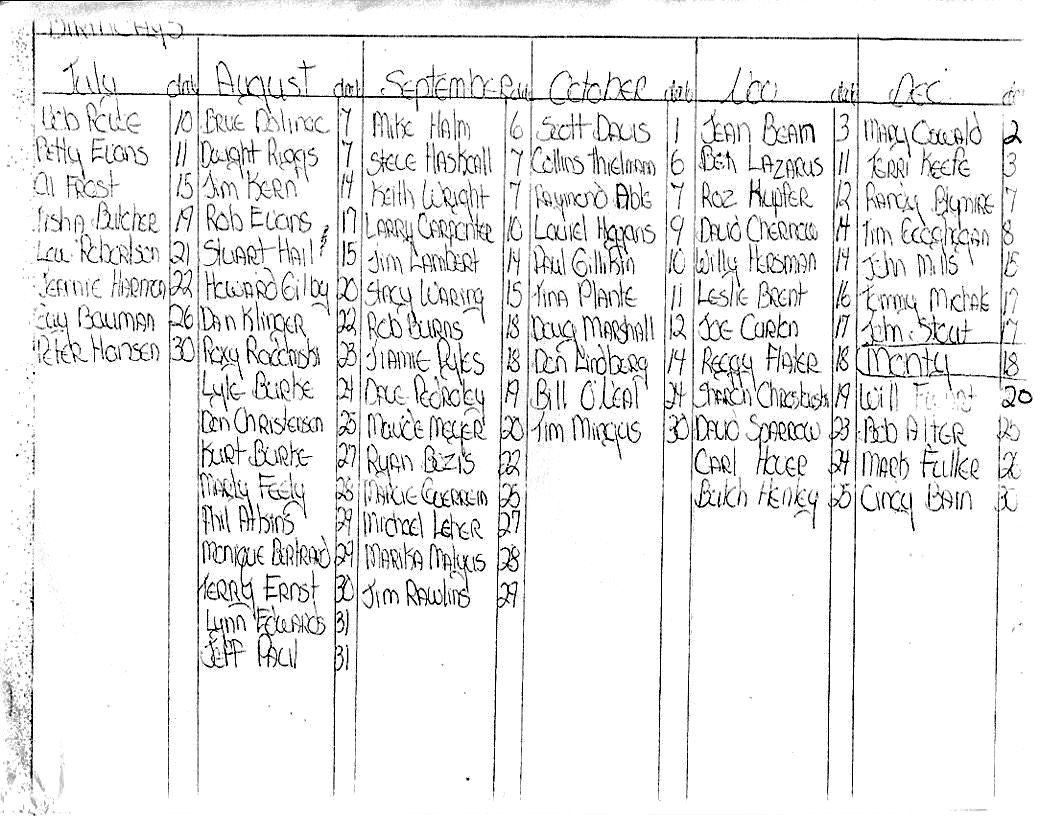 BIRTHDAYS
July date August date September date October date Nov date Dec
10 Brue Dolinac 7 Mike Halm 6 Scott Davis 1 Jean Beam 3 Mary Oswald 2
Betty Evans 11 Dwight Riggs 7 Steve Haskall 7 Collins Thielman 6 Ben Lazarus 11 Terri Keefe 3
Al Frost 15 Jim Kern 14 Keith Wright 7 Raymond Able 7 Roz Kupfer 12 Randy Blymire 7
Tisha Butcher 19 Rob Evans 17 Larry Carpenter 10 Lauriel Haggans 9 David Chernow 14 Tim 8
Lou Robertson 21 Stuart Hail 15 Jim Lambert 14 Paul Gillikin 10 Willy Hersman 14 John Mills 15
Jeannie Harmon 22 Howard Gilby 20 Stacy Waring 15 Tina Plante 11 Leslie Brent 16 Tommy 17
Bauman 26 Dan Klinger 22 Rob Burns 18 Doug Marshall 12 Joe 17 Jim Stout 17
Peter Hansen 30 Roxy 23 Jiamie Ryles 18 Den Lindberg 14 Reggy 18 Monty 18
Lyle Burke 24 Dave 19 Bill O'Leat 24 Sharon 19 Will 20
Don Christenson 25 20 Tim Mingus 30 David Sparrow 23 Bob Alter
Kurt Burke 27 Ryan Bezis 22 Carl Hover 24 Mark Fuller
Marty Feely 28 Butch Henley 25 Cindy Bain
Phil Atkins 29 Michael Leher 27
Monique Bertrand 29 Marika Malyus 28
Terry Ernst 30 Jim Rawlins 29
Lynn Edwards 31
Jeff Paul 31